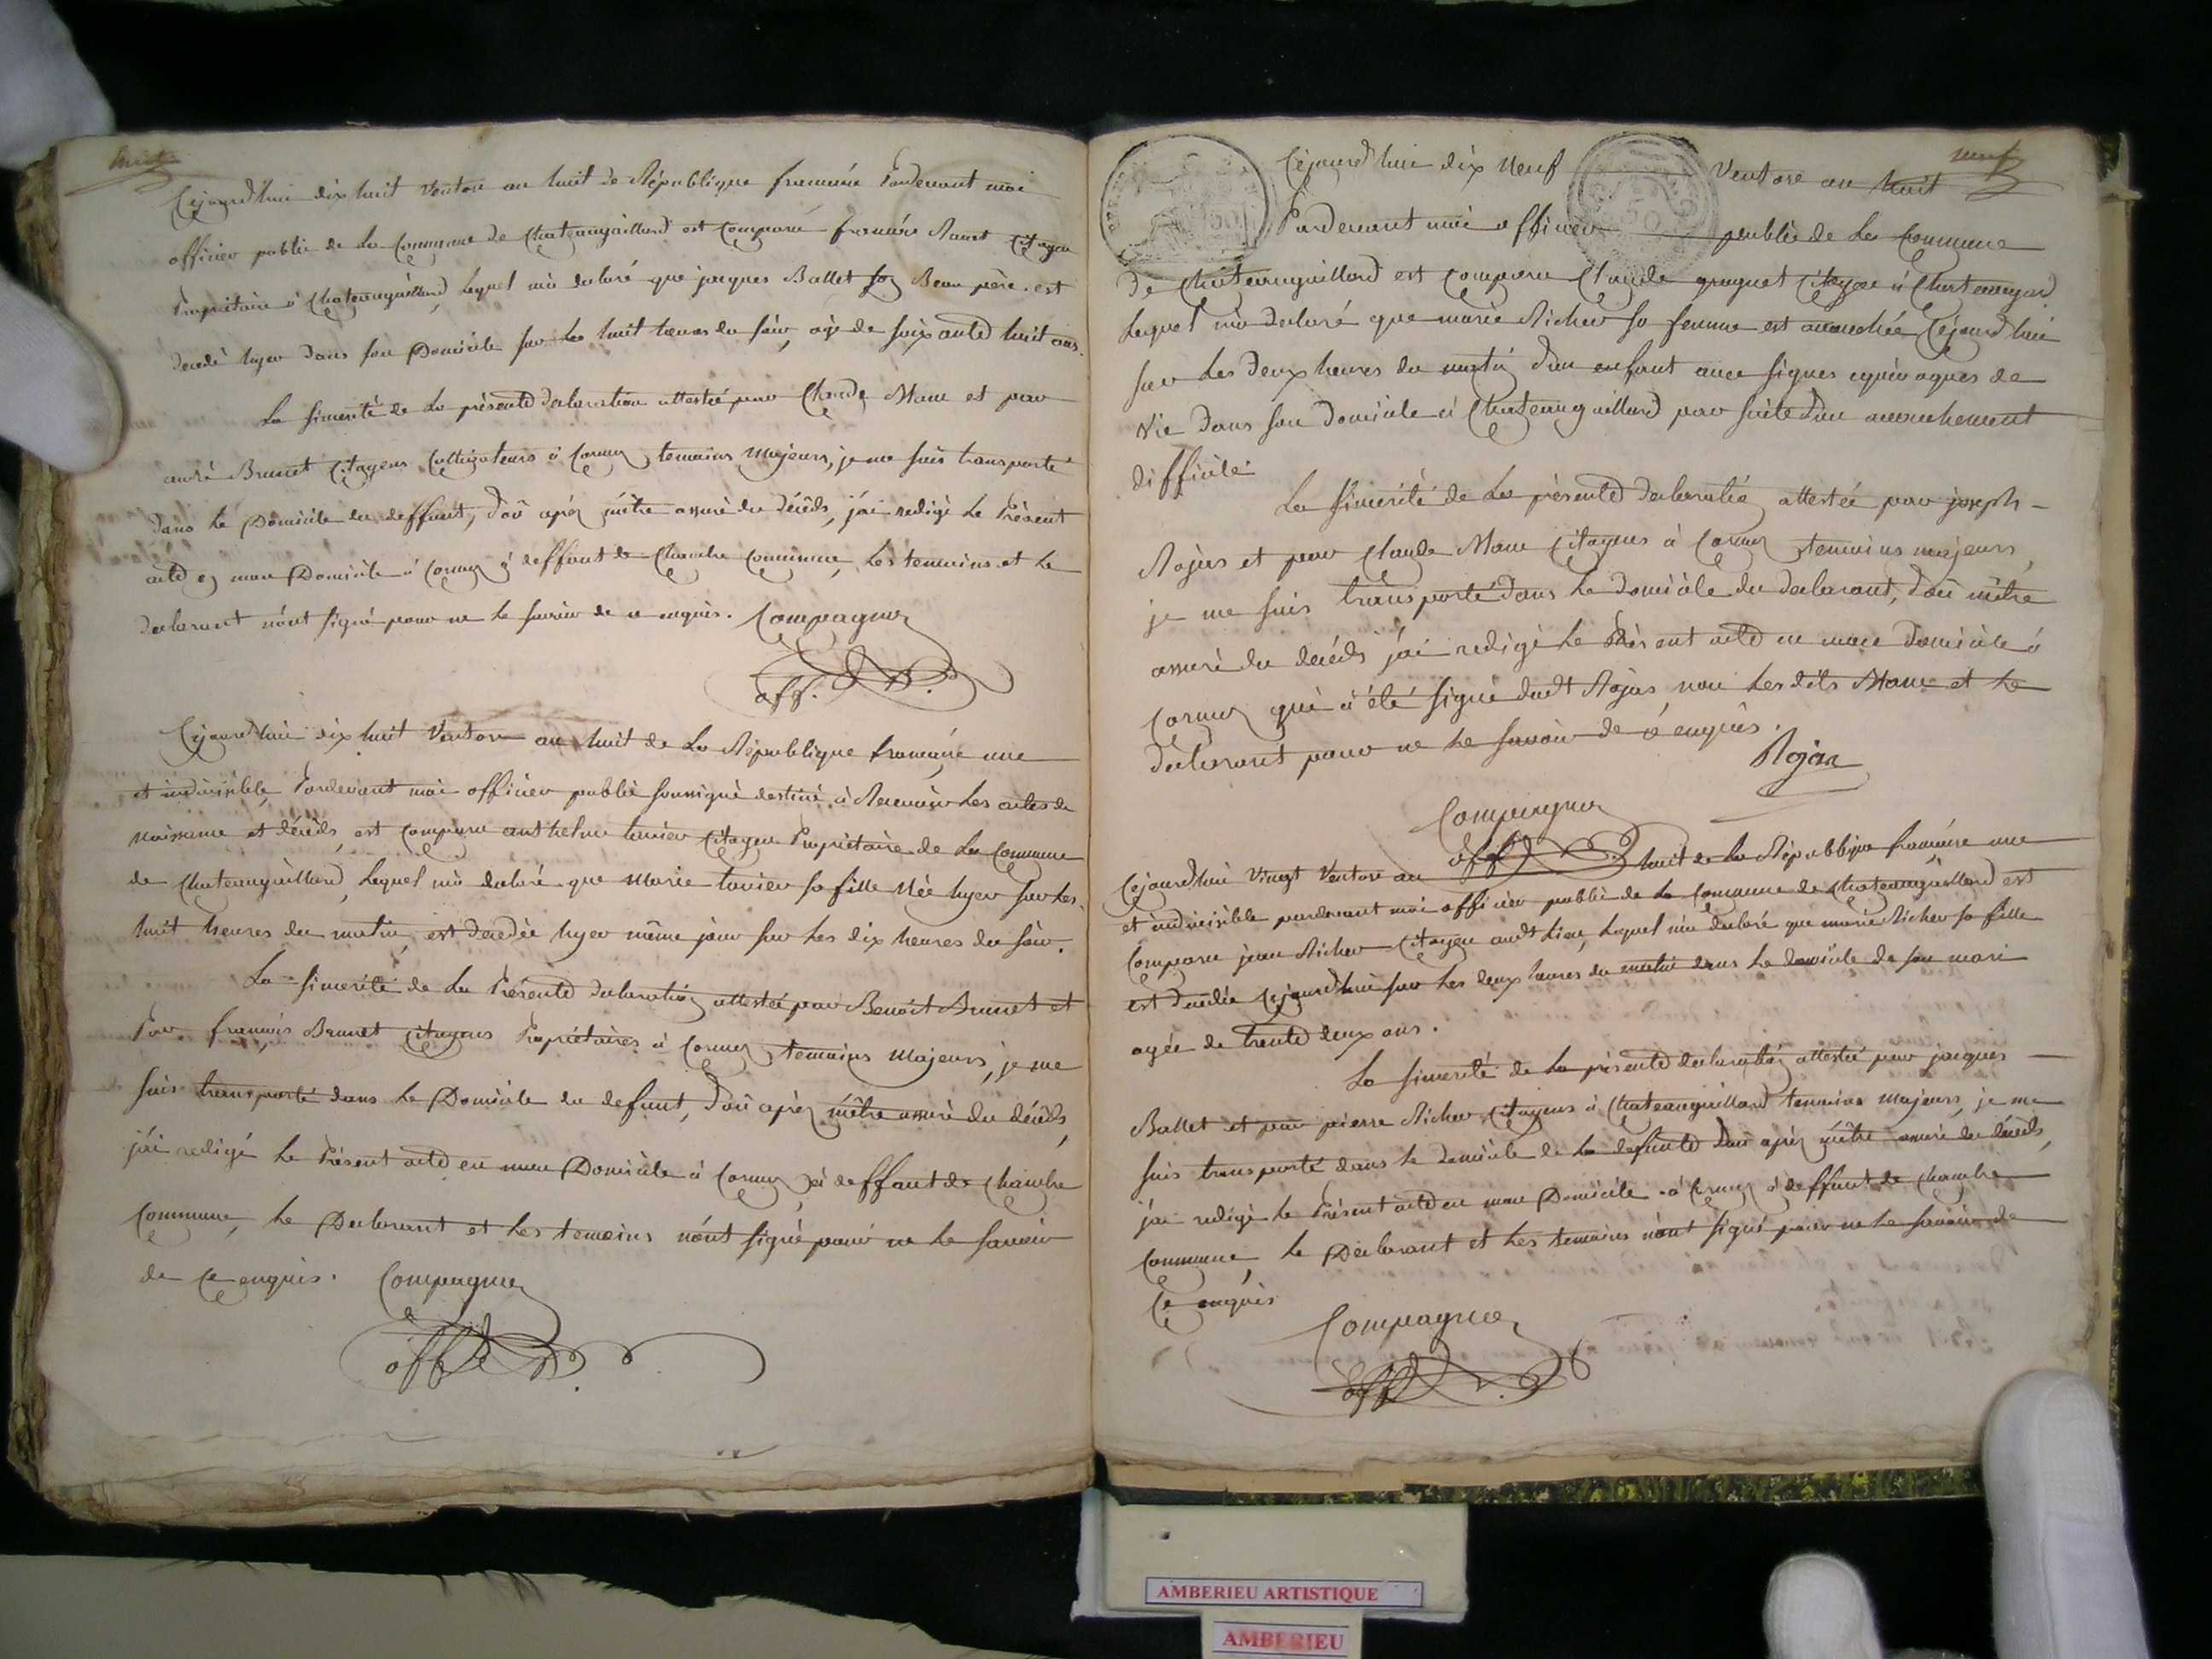 huit
Cejourdhui dix huit ventose an huit de République francaise Pardevant moi
officier public de La Commune de Chateaugaillard est Comparu francois Citoyen
Propriétaire à Chateaugaillard, Lequel m'a declaré que jacques Ballet son Beau père est
decedé hyer dans son Domicile sur Les huit heures du soir, agé de soixante huit ans.
La sincerité de La présente declaration attestée par Claude et par
andré Brunet Citoyens Cultivateurs à Cormoz temoins Majeurs, je me suis transporté
dans Le Domicile du deffunt, d'où après m'être assuré du décéds, j'ai redigé Le Présent
acte en mon Domicile à Cormoz à deffaut de Chambre Commune, Les temoins et Le
declarant n'ont signé pour ne Le savoir de ce enquis. Compagnon
off. p.
Cejourdhui dix huit Ventose an huit de La République francaise une
et indivisible, Pardevant moi officier public soussigné destiné à Recevoir Les actes de
naissance et décéds, est Comparu anthelme tenier Citoyen Propriétaire de La Commune
de Chateaugaillard, Lequel m'a declaré que Marie tenier sa fille Née hyer sur Les
huit heures du matin, est decedée hyer même jour sur Les dix heures du soir.
La sincerité de La Présente declaration attestée par Benoit Brunet et
Par francois Brunet Citoyens Propriétaires à Cormoz temoins Majeurs, je me
suis transporté dans Le Domicile du defunt, d'où après m'être assuré du décéds,
j'ai redigé Le Présent acte en mon Domicile à Cormoz, à deffaut de Chambre
Commune, Le Declarant et Les temoins n'ont signé pour ne Le savoir
de Ce enquis. Compagnon
off. p.
neuf
Cejourdhui dix Neuf Ventose an huit
Pardevant moi officier public de La Commune
de Chateaugaillard est Comparu Claude Citoyen à Chateaugaillard
Lequel m'a declaré que marie Richer sa femme est accouchée Cejourdhui
sur Les Deux heures du matin d'un enfant avec signes equivoques de
Vie Dans son Domicile à Chateaugaillard par suite d'un accouchement
difficile.
La sincérité de La présente declaration attestée par joseph
Rojas et par Claude Citoyens à Cormoz temoins majeurs,
je me suis transporté dans Le domicile du declarant, d'où m'être
assuré du décéds j'ai redigé Le Présent acte en mon Domicile à
Cormoz qui a été signé dudt Rojas, non Les dits et Le
déclarant pour ne Le savoir de ce enquis.
Rojas
Compagnon
off. p.
Cejourdhui vingt Ventose an huit de La République francaise une
et indivisible pardevant moi officier public de La Commune de Chateaugaillard est
Comparu jean Richer Citoyen audt Lieu, Lequel m'a declaré que marie Richer sa fille
est decedée Cejourdhui sur Les deux heures du matin dans Le domicile de son mari
agée de trente deux ans.
La sincerité de La présente declaration attestée par jacques
Ballet et par pierre Richer Citoyens à Chateaugaillard temoins Majeurs, je me
suis transporté dans Le domicile de La defunte d'où après m'être assuré du décéds,
j'ai redigé Le Présent acte en mon Domicile à Cormoz à deffaut de Chambre
Commune, Le Déclarant et Les temoins n'ont signé pour ne Le savoir de
Ce enquis
Compagnon
off. p.
AMBERIEU ARTISTIQUE
AMBERIEU